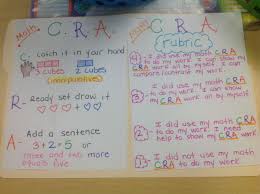 Math C. R. A.
C. catch it in your hand
3 cubes 2 cubes
(manipulatives)
R- Ready set draw it
A- Add a sentence
3+2=5 or
three and two more
equals five
Math C R A
rubric
4- I did use my math CRA
to do my work. I can show my
CRA work all by myself. I can
compare/contrast my work.
3- I did use my math CRA
to do my work. I can show my
CRA work all by myself
2- I did use my math CRA
to do my work. I need
help to show my CRA work.
1- I did not use my math
CRA to do my work.